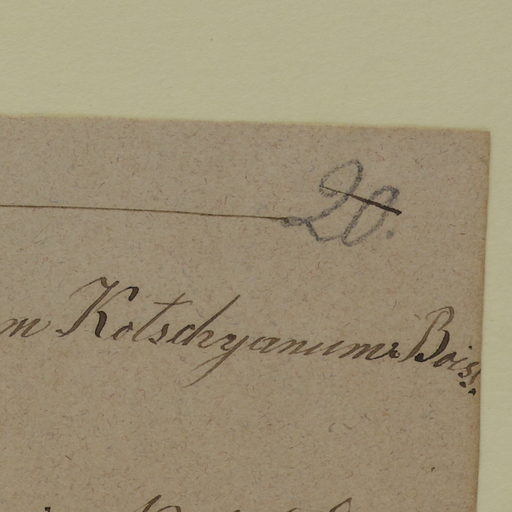 20.
m Kotschyanum Boiss.